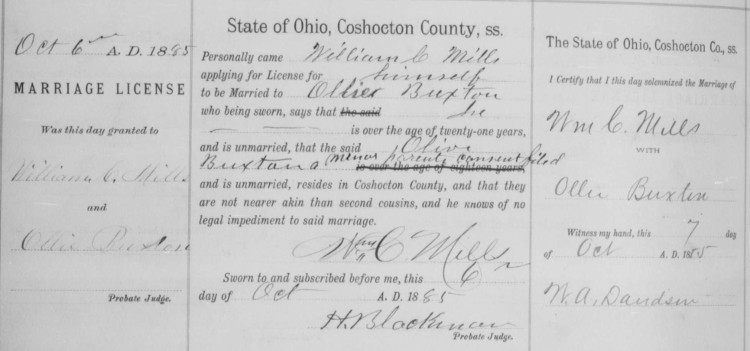 Oct 6th A. D. 1885
MARRIAGE LICENSE
Was this day granted to
William C. Mills
and
Ollie Buxton
Probate Judge.
State of Ohio, Coshocton County, ss.
Personally came William C Mills
applying for License for himself
to be Married to Ollie Buxton
who being sworn, says that the said he
is over the age of twenty-one years,
and is unmarried, that the said Olive
Buxton a minor parents consent filed
is over the age of eighteen years,
and is unmarried, resides in Coshocton County, and that they
are not nearer akin than second cousins, and he knows of no
legal impediment to said marriage.
Wm C Mills
Sworn to and subscribed before me, this 6
day of Oct A. D. 1885
H. Blackman
Probate Judge.
The State of Ohio, Coshocton Co., ss.
I Certify that I this day solemnized the Marriage of
Wm C. Mills
WITH
Ollie Buxton
Witness my hand, this 7 day
of Oct A. D. 1885
W. A. Davidson